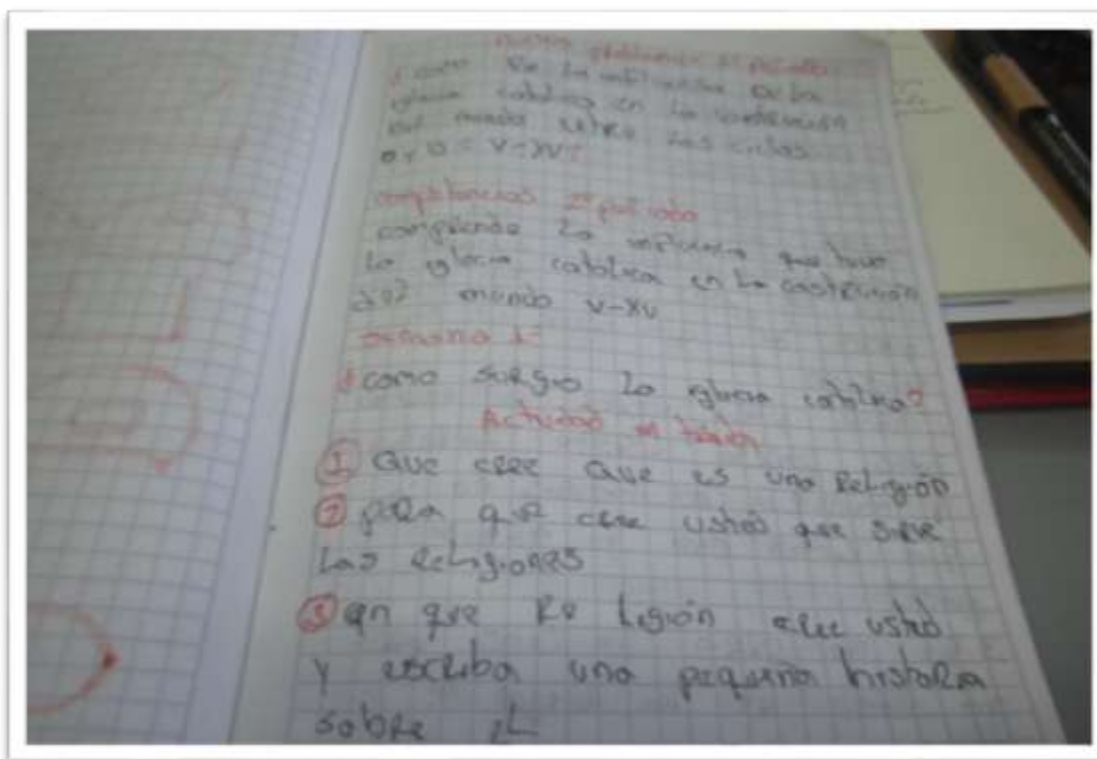 ¿ como fue la influencia de la
iglecia catolica en la construcción
del mundo entre los ciclos
V-XV?
competencias 2º periodo
comprende la influencia que tuvo
la iglecia catolica en la construcción
del mundo V-XV
semana 1:
¿como surgio la iglecia catolica?
Actividad en
① Que cree que es una Religión
② para que cree usted que sirve
las Religiones
③ en que Religión cree usted
y escriba una pequeña historia
sobre el